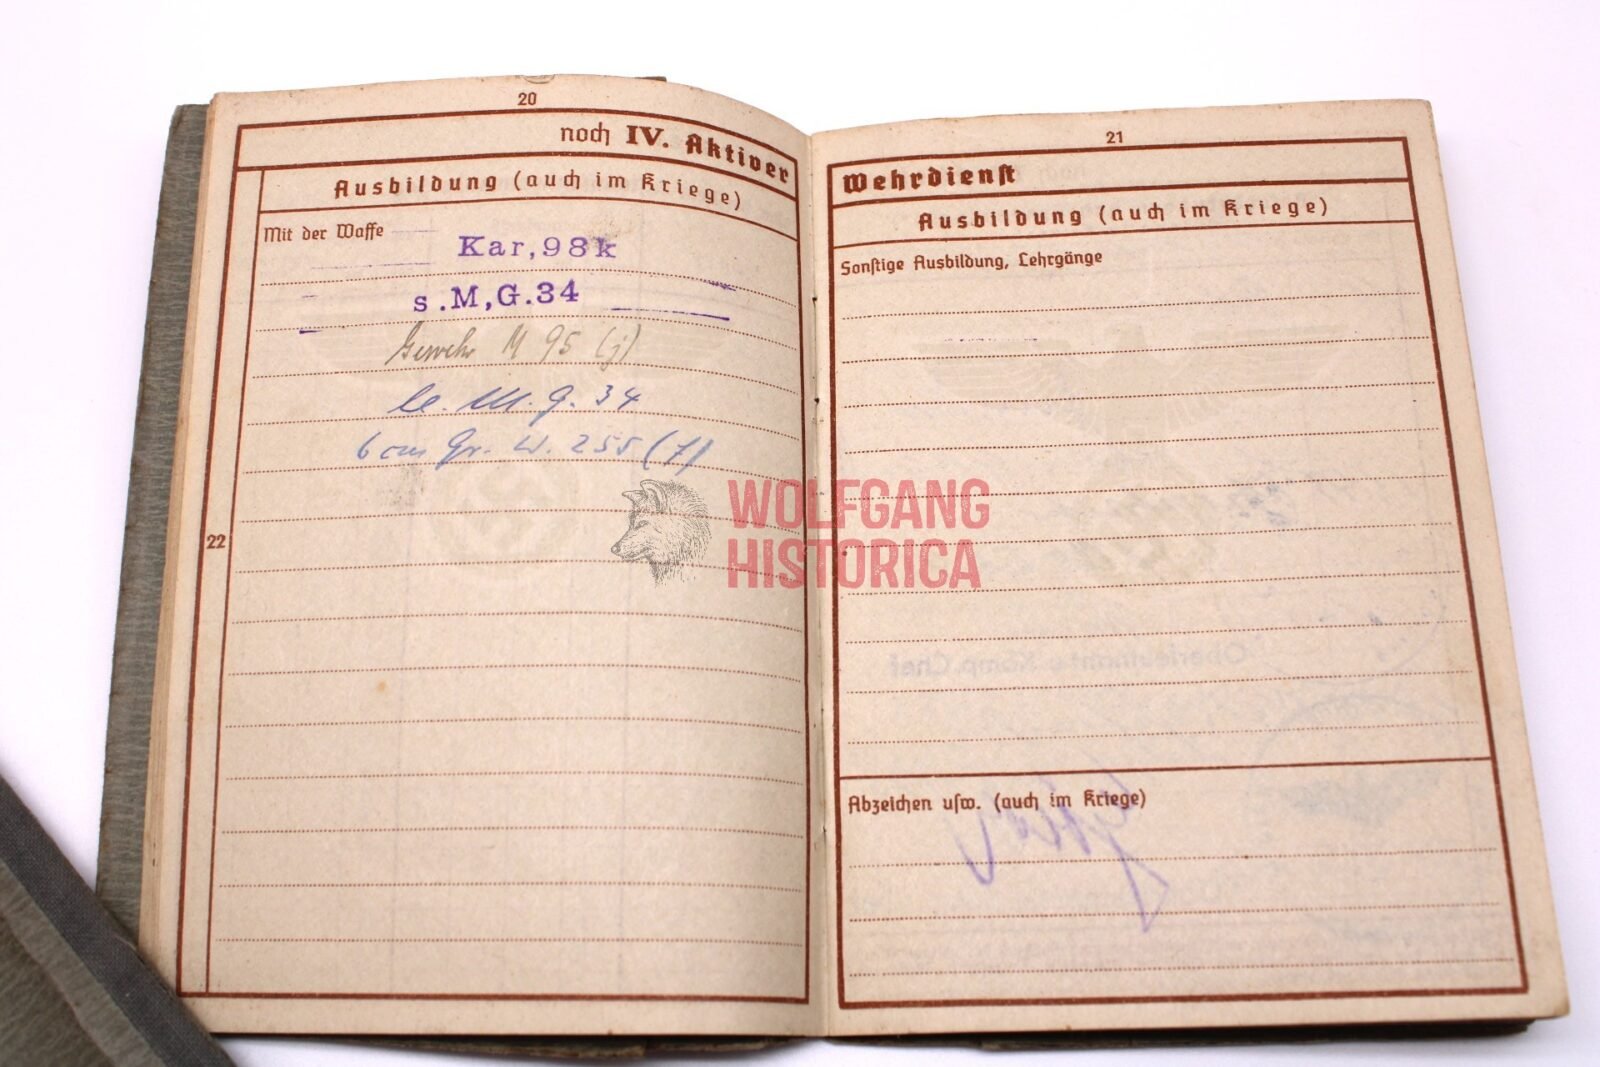 20
noch IV. Aktiver
Ausbildung (auch im Kriege)
Mit der Waffe
Kar,98k
s.M,G.34
Gewehr M 95 (j)
le. M. G. 34
6 cm Gr. W. 255 (f)
22
21
Wehrdienst
Ausbildung (auch im Kriege)
Sonstige Ausbildung, Lehrgänge
Abzeichen usw. (auch im Kriege)
WOLFGANG
HISTORICA